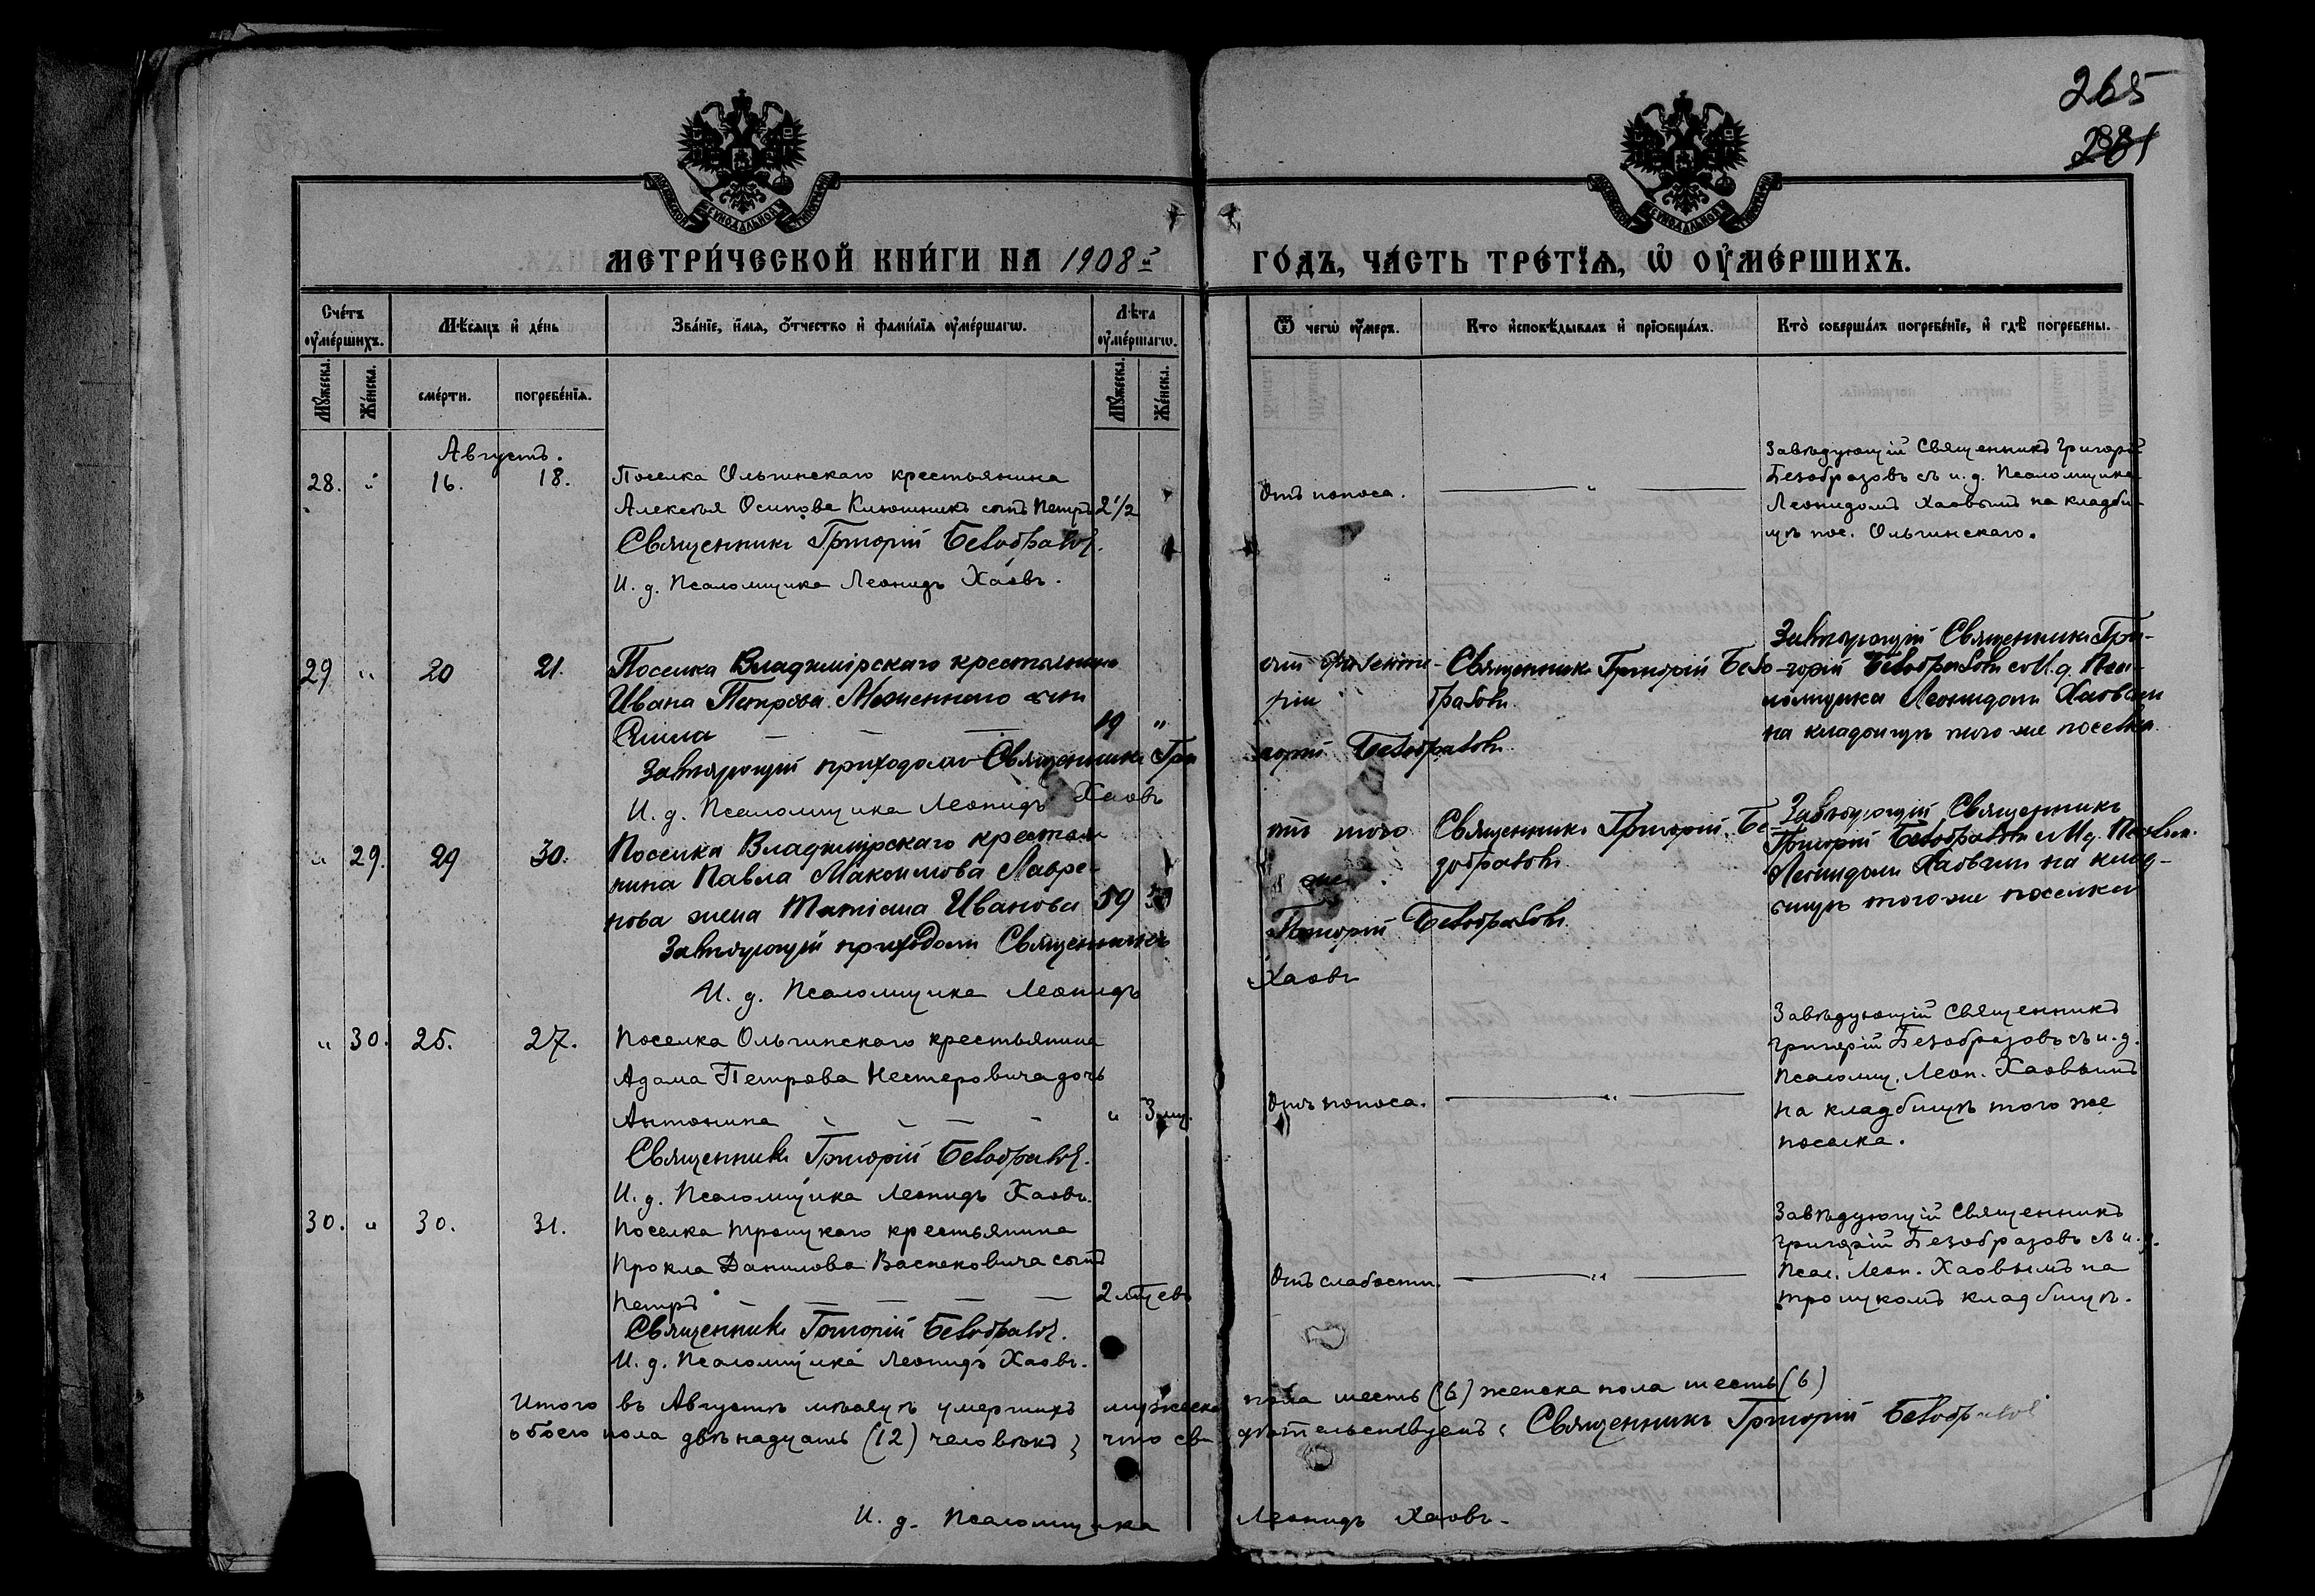 265
281
МЕТРИ́ЧЕСКОЙ КНИ́ГИ НА 1908й
ГО́ДЪ, ЧА́СТЬ ТРЕ́ТЇѦ, Ѡ҆ ОУ҆МЕ́РШИХЪ.
Сче́тъ оу҆ме́ршихъ.
Мѣ́сѧцъ и҆ де́нь
Зва́нїе, и҆́мѧ, ѻ҆́тчество и҆ фами́лїѧ оу҆ме́ршагѡ.
Лѣ́та оу҆ме́ршагѡ.
Ѿ чегѡ̀ оу҆́меръ.
Кто̀ и҆сповѣ́дывалъ и҆ прїѻбща́лъ.
Кто̀ соверша́лъ погребе́нїе, и҆ гдѣ̀ погребены̀.
Мꙋ́жеска.
Же́нска.
сме́рти.
погребе́нїѧ.
Мꙋ́жеска.
Же́нска.
Августъ.
28. " 16. 18.
Поселка Ольгинскаго крестьянина
Алексѣя Осипова Клюшникъ сынъ Петръ 2½
Священникъ Григорій Безобразов.
И. д. Псаломщика Леонидъ Хаовъ.
Отъ поноса. — " —
Завѣдующій Священникъ Григорій
Безобразовъ съ и. д. Псаломщика
Леонидомъ Хаовымъ на кладби-
щѣ пос. Ольгинскаго.
29 " 20 21.
Поселка Владимірскаго крестьянина
Ивана Петрова сын
19 "
Завѣдующій приходом Священник Гри
горій Безобразовъ
И. д. Псаломщика Леонидъ Хаовъ
от дизенте-
рии
Священникъ Григорій Безо-
бразовъ.
Завѣдующій Священникъ Гри-
горій Безобразовъ с И. д. Пса-
ломщика Леонидом Хаовым
на кладбищѣ того же поселка.
" 29. 29 30.
Поселка Владимірскаго крестья
нина Павла Максимова Лавре-
нова жена Татіана Иванова 59
Завѣдующій приходом Священникъ
Григорій Безобразовъ
И. д. Псаломщика Леонидъ
Хаовъ
от того
же
Священникъ Григорій Бе
зобразовъ
Завѣдующій Священникъ
Григорій Безобразовъ с И. д. Псалом.
Леонидом Хаовым на клад-
бищѣ того же поселка
" 30. 25. 27.
Поселка Ольгинскаго крестьянина
Адама Петрова Нестеровича дочь
Антонина " 3 мц.
Священникъ Григорій Безобразов.
И. д. Псаломщика Леонидъ Хаовъ.
Отъ поноса. — " —
Завѣдующій Священникъ
Григорій Безобразовъ съ и. д.
Псаломщ. Леон. Хаовымъ
на кладбищѣ того же
поселка.
30. " 30. 31.
Поселка Троицкаго крестьянина
Прокла Данилова Васьковича сынъ
Петръ 2 мцев
Священникъ Григорій Безобразов.
И. д. Псаломщика Леонидъ Хаовъ.
Отъ слабости. — " —
Завѣдующій Священникъ
Григорій Безобразовъ съ и. д.
Псал. Леон. Хаовымъ на
троицкомъ кладбищѣ.
Итого въ Августѣ мѣсяцѣ умершихъ мужеска пола шесть (6) женска пола шесть (6)
обоего пола двѣнадцать (12) человѣкъ; что свидѣтельствуемъ: Священникъ Григорій Безобразов
И. д. Псаломщика Леонидъ Хаовъ.